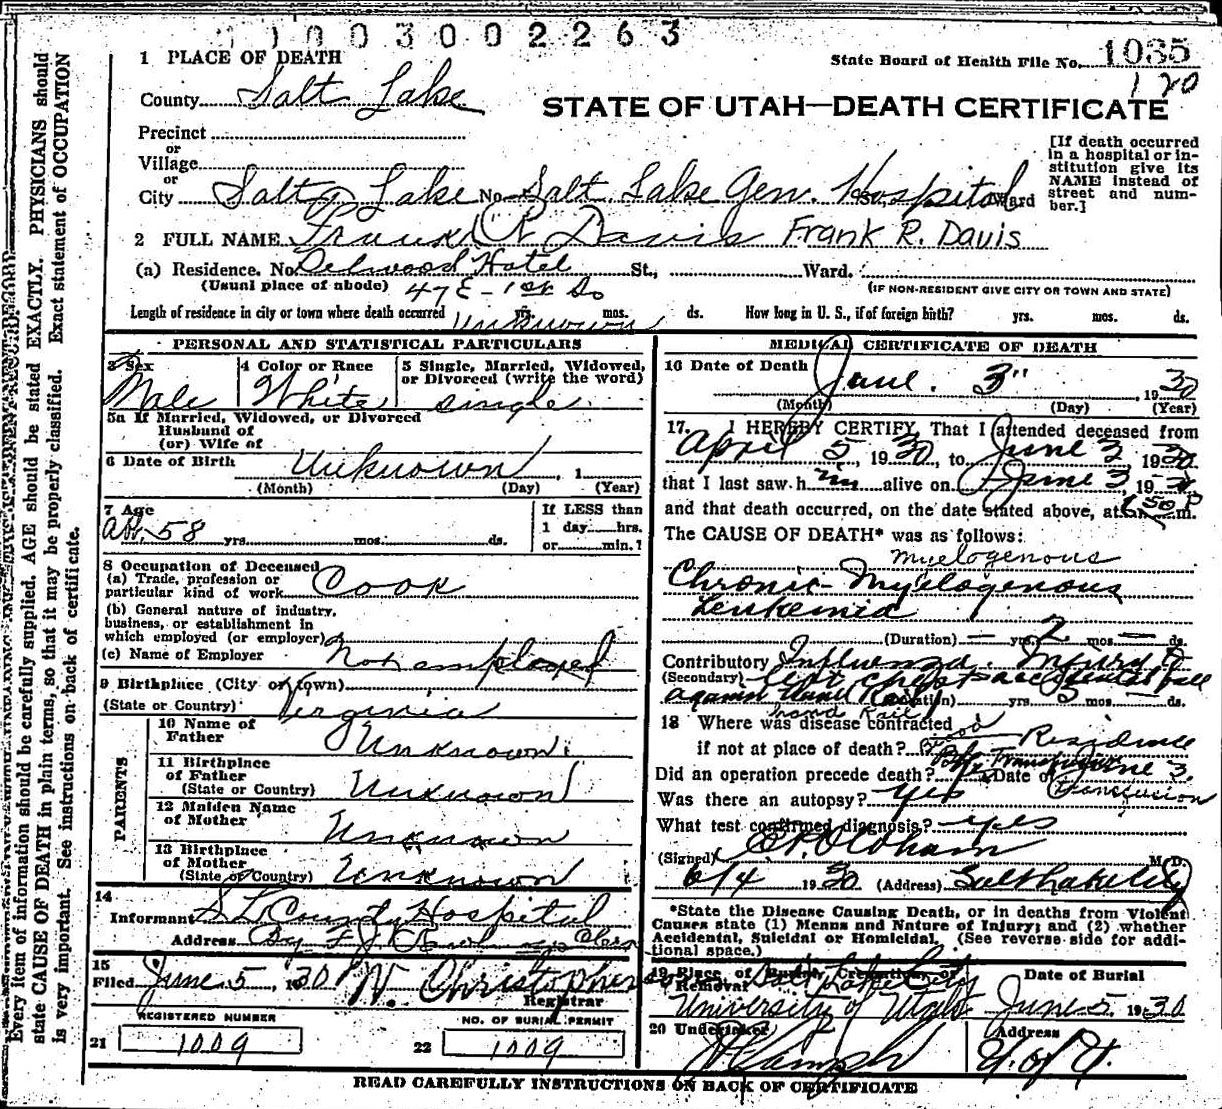 1003002263
1 PLACE OF DEATH
State Board of Health File No. 1035
120
County Salt Lake
STATE OF UTAH—DEATH CERTIFICATE
Precinct
or
Village
or
City Salt Lake No. Salt Lake Gen. Hospital St., Ward
[If death occurred in a hospital or institution give its NAME instead of street and number.]
2 FULL NAME Frank R Davis Frank R. Davis
(a) Residence. No. Delwood Hotel St., Ward.
(Usual place of abode) 47 E - 1st So
(IF NON-RESIDENT GIVE CITY OR TOWN AND STATE)
Length of residence in city or town where death occurred Unknown yrs. mos. ds. How long in U. S., if of foreign birth? yrs. mos. ds.
PERSONAL AND STATISTICAL PARTICULARS
3 Sex
Male
4 Color or Race
White
5 Single, Married, Widowed, or Divorced (write the word)
single
5a If Married, Widowed, or Divorced
Husband of
(or) Wife of
6 Date of Birth Unknown, 1
(Month) (Day) (Year)
7 Age
ab. 58 yrs. mos. ds.
If LESS than
1 day hrs.
or min.?
8 Occupation of Deceased
(a) Trade, profession or
particular kind of work Cook
(b) General nature of industry,
business, or establishment in
which employed (or employer)
(c) Name of Employer Not employed
9 Birthplace (City or Town)
(State or Country) Virginia
PARENTS
10 Name of
Father Unknown
11 Birthplace
of Father
(State or Country) Unknown
12 Maiden Name
of Mother Unknown
13 Birthplace
of Mother
(State or Country) Unknown
14
Informant S L County Hospital
Address By
15
Filed June 5, 1930 W. Christophers
Registrar
REGISTERED NUMBER
21 1009
NO. OF BURIAL PERMIT
22 1009
MEDICAL CERTIFICATE OF DEATH
16 Date of Death
June 3" , 1930
(Month) (Day) (Year)
17. I HEREBY CERTIFY, That I attended deceased from
April 5, 1930, to June 3 1930
that I last saw him alive on June 3, 1930
and that death occurred, on the date stated above, at 6 50 P m.
The CAUSE OF DEATH* was as follows:
myelogenous
Chronic Myelogenous
Leukemia
(Duration) — yrs. 2 mos — ds.
Contributory Influenza. Injured
(Secondary) left chest accidental fall
against Hand Rail (Duration) yrs 3 mos — ds.
hand rail
18 Where was disease contracted
if not at place of death? Residence
Blood Transfusion
Did an operation precede death? yes Date of June 3.
Was there an autopsy? yes Transfusion
What test confirmed diagnosis? yes
(Signed) Oldham M.D.
6/4 1930 (Address) Salt Lake City
*State the Disease Causing Death, or in deaths from Violent
Causes state (1) Means and Nature of Injury; and (2) whether
Accidental, Suicidal or Homicidal. (See reverse side for additional space.)
19 Place of Burial, Cremation, or
Removal Salt Lake City
University of Utah
Date of Burial
June 5 1930
20 Undertaker
Address
U. of U.
READ CAREFULLY INSTRUCTIONS ON BACK OF CERTIFICATE
Every item of information should be carefully supplied. AGE should be stated EXACTLY. PHYSICIANS should
state CAUSE OF DEATH in plain terms, so that it may be properly classified. Exact statement of OCCUPATION
is very important. See instructions on back of certificate.